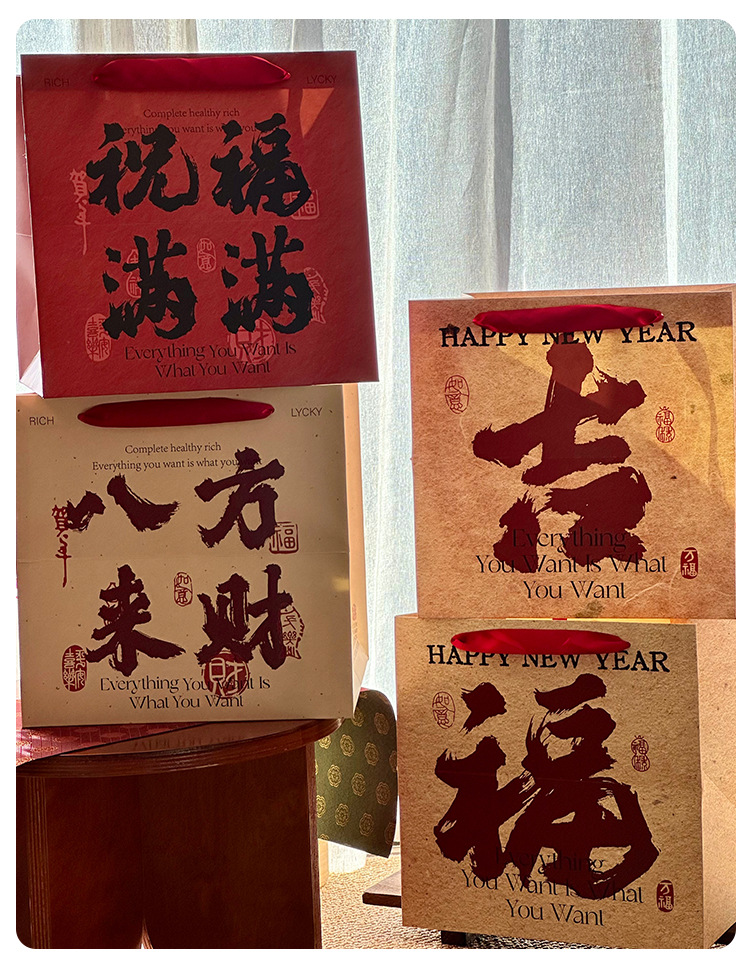 RICH LYCKY
Complete healthy rich
Everything you want is what you
祝福
满满
賀年
福
如意
財
Everything You Want Is
What You Want
RICH LYCKY
Complete healthy rich
Everything you want is what you
八方
来财
賀年
福
如意
財
Everything You Want Is
What You Want
HAPPY NEW YEAR
吉
如意
万福
Everything
You Want Is What
You Want
HAPPY NEW YEAR
福
如意
万福
Everything
You Want Is What
You Want